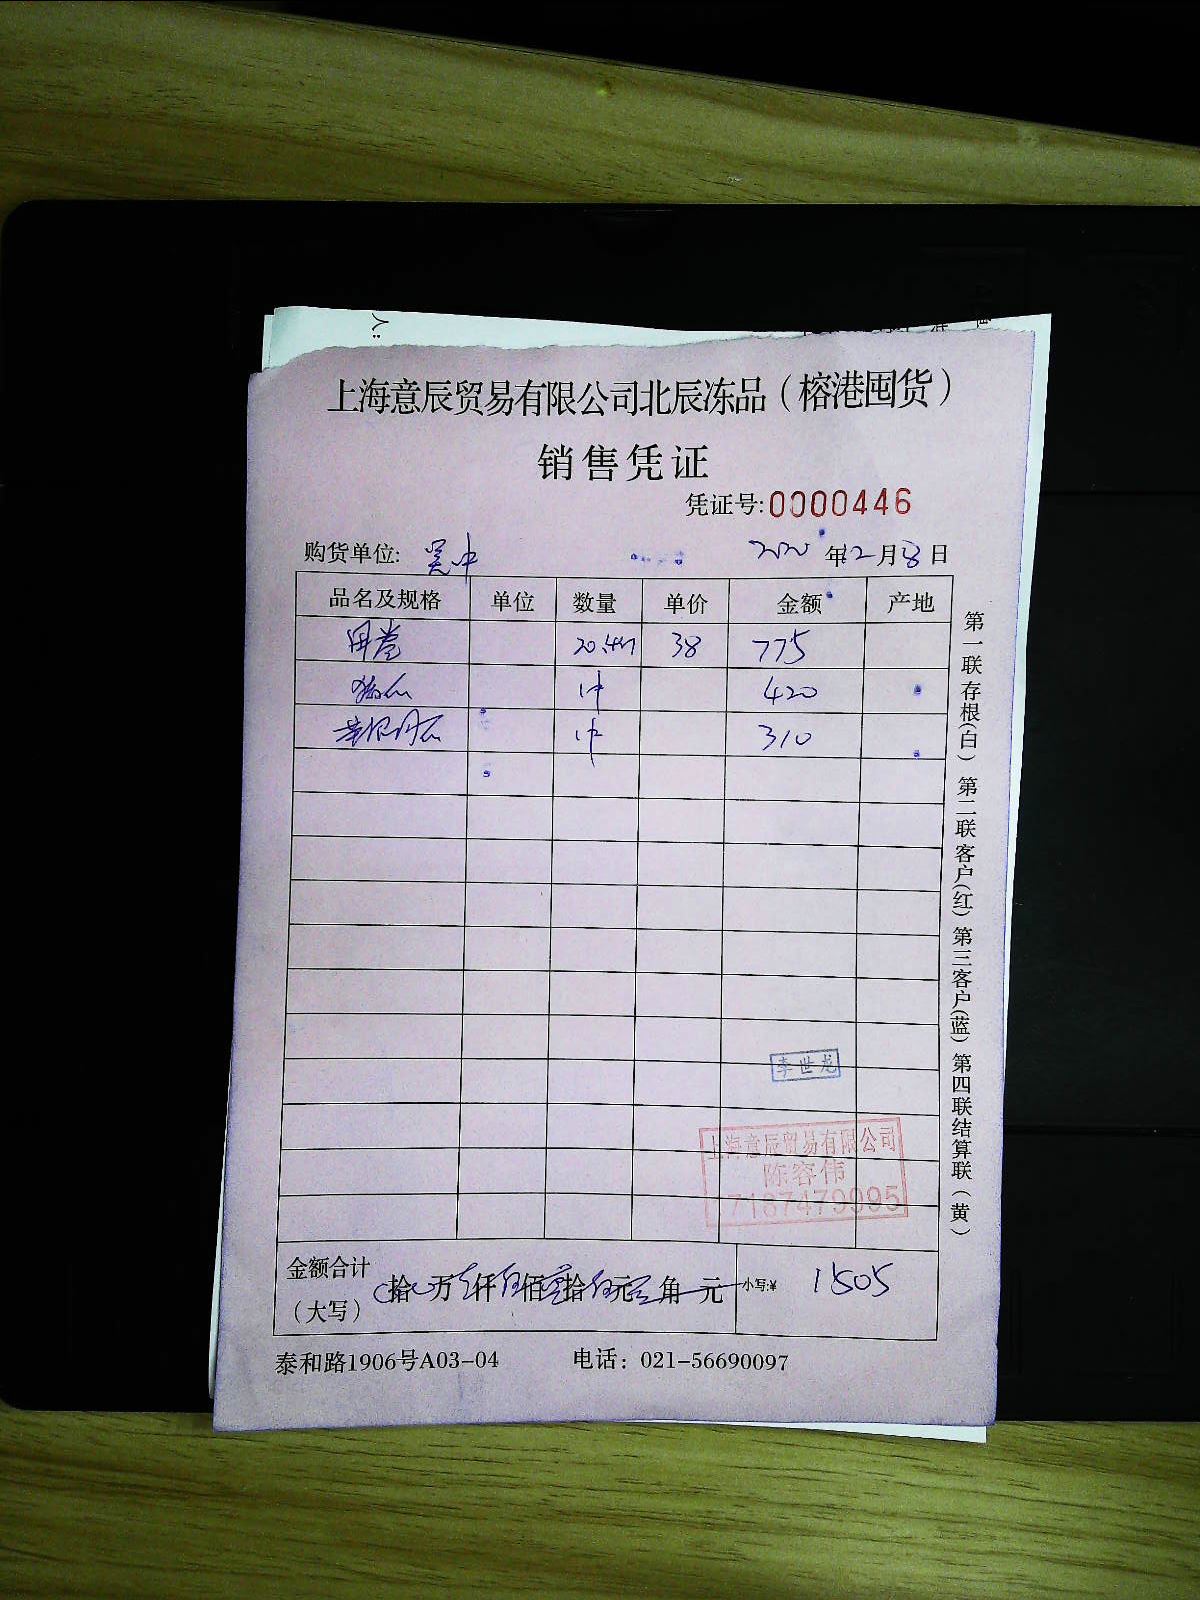 人:
上海意辰贸易有限公司北辰冻品（榕港囤货）
销售凭证
凭证号:0000446
购货单位: 吴中 2020 年12月8日
品名及规格 单位 数量 单价 金额 产地
38 775
1件 420
1件 310
李世龙
上海意辰贸易有限公司
陈容伟
金额合计
（大写） 拾 万 仟 佰 拾 元 角 元 小写:¥ 1505
泰和路1906号A03-04 电话：021-56690097
第一联存根(白) 第二联客户(红) 第三客户(蓝) 第四联结算联（黄）